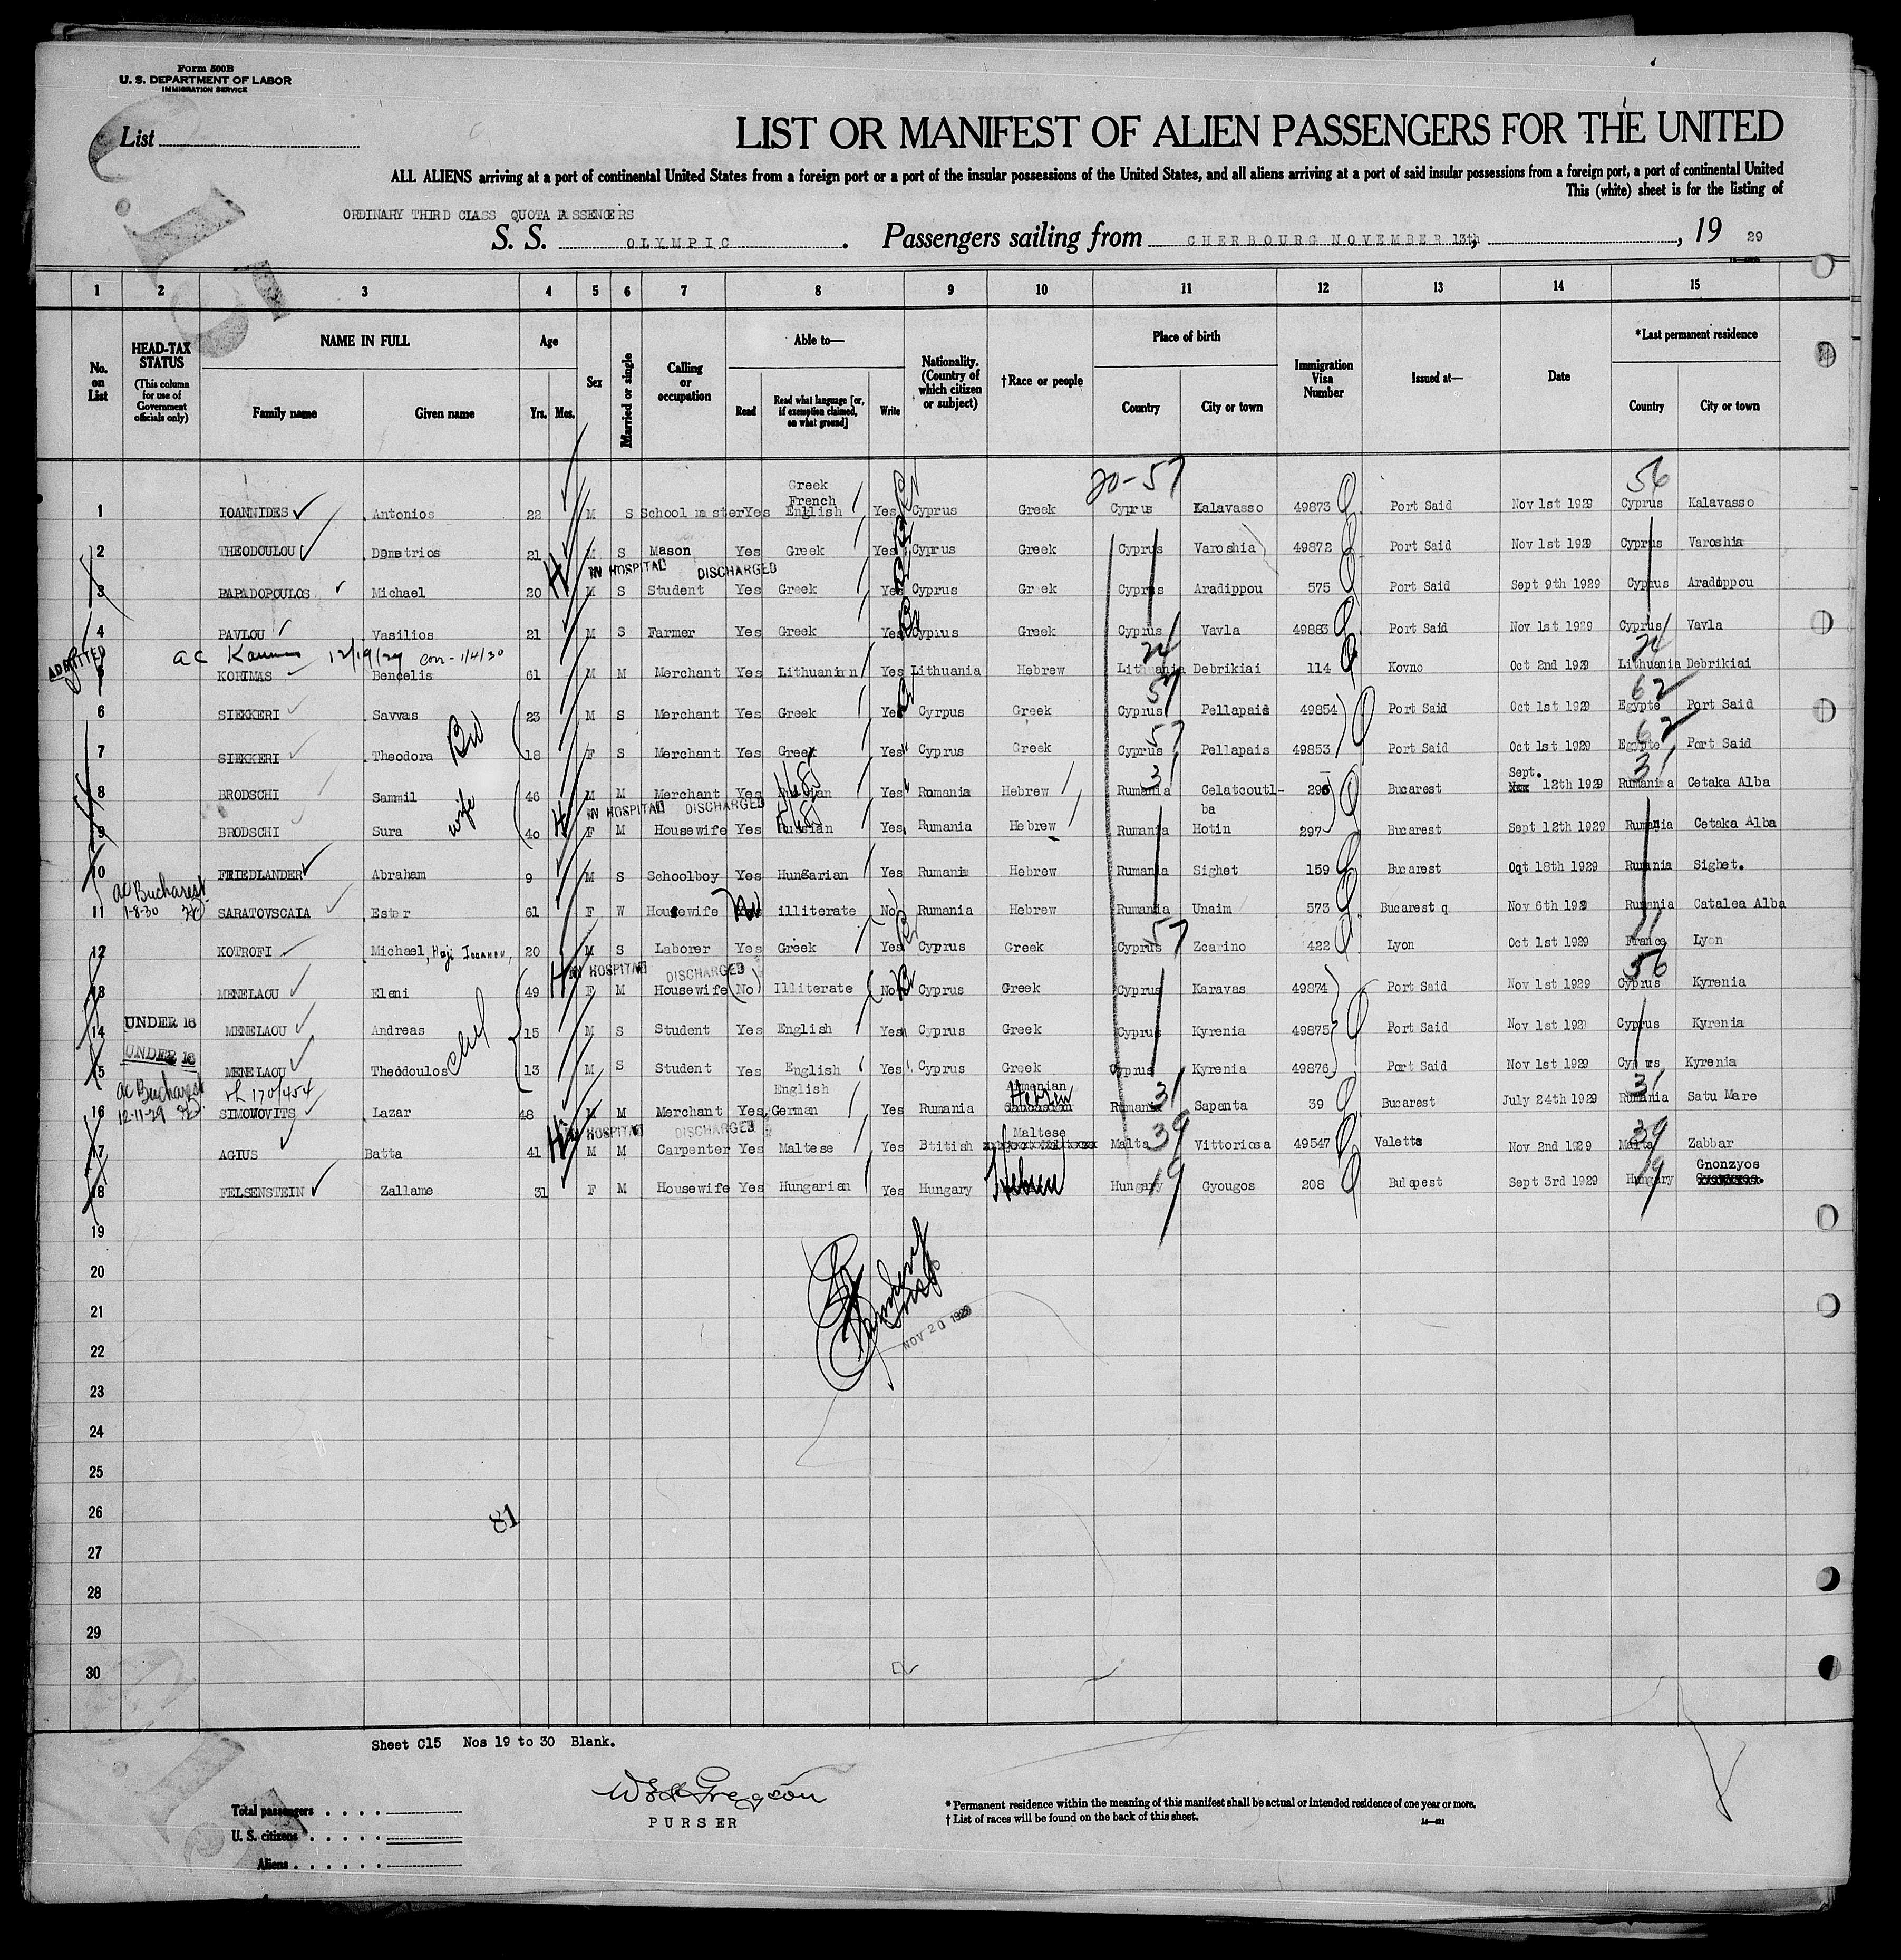 Form 500B
U. S. DEPARTMENT OF LABOR
IMMIGRATION SERVICE
List
LIST OR MANIFEST OF ALIEN PASSENGERS FOR THE UNITED
ALL ALIENS arriving at a port of continental United States from a foreign port or a port of the insular possessions of the United States, and all aliens arriving at a port of said insular possessions from a foreign port, a port of continental United
This (white) sheet is for the listing of
ORDINARY THIRD CLASS QUOTA PASSENGERS
S. S. OLYMPIC. Passengers sailing from CHERBOURG NOVEMBER 13th, 19 29
1 2 3 4 5 6 7 8 9 10 11 12 13 14 15
No. on List
HEAD-TAX STATUS (This column for use of Government officials only)
NAME IN FULL Family name Given name
Age Yrs. Mos.
Sex
Married or single
Calling or occupation
Able to— Read Read what language [or, if exemption claimed, on what ground] Write
Nationality. (Country of which citizen or subject)
†Race or people
Place of birth Country City or town
Immigration Visa Number
Issued at—
Date
*Last permanent residence Country City or town
20-57 56
1 IOANNIDES Antonios 22 M S School master Yes Greek French English Yes Cyprus Greek Cyprus Kalavasso 49873 Port Said Nov 1st 1929 Cyprus Kalavasso
2 THEODOULOU Demetrios 21 M S Mason Yes Greek Yes Cyprus Greek Cyprus Varoshia 49872 Port Said Nov 1st 1929 Cyprus Varoshia
IN HOSPITAL DISCHARGED
3 PAPADOPOULOS Michael 20 M S Student Yes Greek Yes Cyprus Greek Cyprus Aradippou 575 Port Said Sept 9th 1929 Cyprus Aradippou
4 PAVLOU Vasilios 21 M S Farmer Yes Greek Yes Cyprus Greek Cyprus Vavla 49883 Port Said Nov 1st 1929 Cyprus Vavla
ADMITTED ac Kaunas 12/19/29 corr-1/4/30 24 24
5 KOHIMAS Bencelis 61 M M Merchant Yes Lithuanian Yes Lithuania Hebrew Lithuania Debrikiai 114 Kovno Oct 2nd 1929 Lithuania Debrikiai
57 62
6 SIEKKERI Savvas 23 M S Merchant Yes Greek Yes Cyrpus Greek Cyprus Pellapais 49854 Port Said Oct 1st 1929 Egypte Port Said
57 62
7 SIEKKERI Theodora 18 F S Merchant Yes Greek Yes Cyprus Greek Cyprus Pellapais 49853 Port Said Oct 1st 1929 Egypte Port Said
31 Sept. 31
8 BRODSCHI Sammil 46 M M Merchant Yes Russian Yes Rumania Hebrew Rumania Celatcoutl-ba 296 Bucarest 12th 1929 Rumania Cetaka Alba
IN HOSPITAL DISCHARGED
9 BRODSCHI Sura wife 40 F M Housewife Yes Russian Yes Rumania Hebrew Rumania Hotin 297 Bucarest Sept 12th 1929 Rumania Cetaka Alba
10 FRIEDLANDER Abraham 9 M S Schoolboy Yes Hungarian Yes Rumania Hebrew Rumania Sighet 159 Bucarest Oct 18th 1929 Rumania Sighet.
ac Bucharest 1-8-30
11 SARATOVSCAIA Ester 61 F W Housewife No illiterate No Rumania Hebrew Rumania Unaim 573 Bucarest q Nov 6th 1929 Rumania Catalea Alba
57 11
12 KOTROFI Michael, Haji Joannou, 20 M S Laborer Yes Greek Yes Cyprus Greek Cyprus Zcarino 422 Lyon Oct 1st 1929 France Lyon
IN HOSPITAL DISCHARGED 56
13 MENELAOU Eleni 49 F M Housewife (No) Illiterate (No) Cyprus Greek Cyprus Karavas 49874 Port Said Nov 1st 1929 Cyprus Kyrenia
14 UNDER 16 MENELAOU Andreas 15 M S Student Yes English Yes Cyprus Greek Cyprus Kyrenia 49875 Port Said Nov 1st 1929 Cyprus Kyrenia
15 UNDER 16 MENELAOU Theodoulos 13 M S Student Yes English Yes Cyprus Greek Cyprus Kyrenia 49876 Port Said Nov 1st 1929 Cyprus Kyrenia
ac Bucharest 12-11-29 170/454 31 31
16 SIMONOVITS Lazar 48 M M Merchant Yes English German Yes Rumania Armenian Hebrew Rumania Sapanta 39 Bucarest July 24th 1929 Rumania Satu Mare
IN HOSPITAL DISCHARGED 39 39
17 AGIUS Batta 41 M M Carpenter Yes Maltese Yes Btitish Maltese Malta Vittoriosa 49547 Valetta Nov 2nd 1929 Malta Zabbar
19 19
18 FELSENSTEIN Zallame 31 F M Housewife Yes Hungarian Yes Hungary Hebrew Hungary Gyougos 208 Budapest Sept 3rd 1929 Hungary Gnonzyos
19
20
21
NOV 20 1929
22
23
24
25
26
81
27
28
29
30
Sheet C15 Nos 19 to 30 Blank.
Total passengers
U. S. citizens
Aliens
PURSER
* Permanent residence within the meaning of this manifest shall be actual or intended residence of one year or more.
† List of races will be found on the back of this sheet.